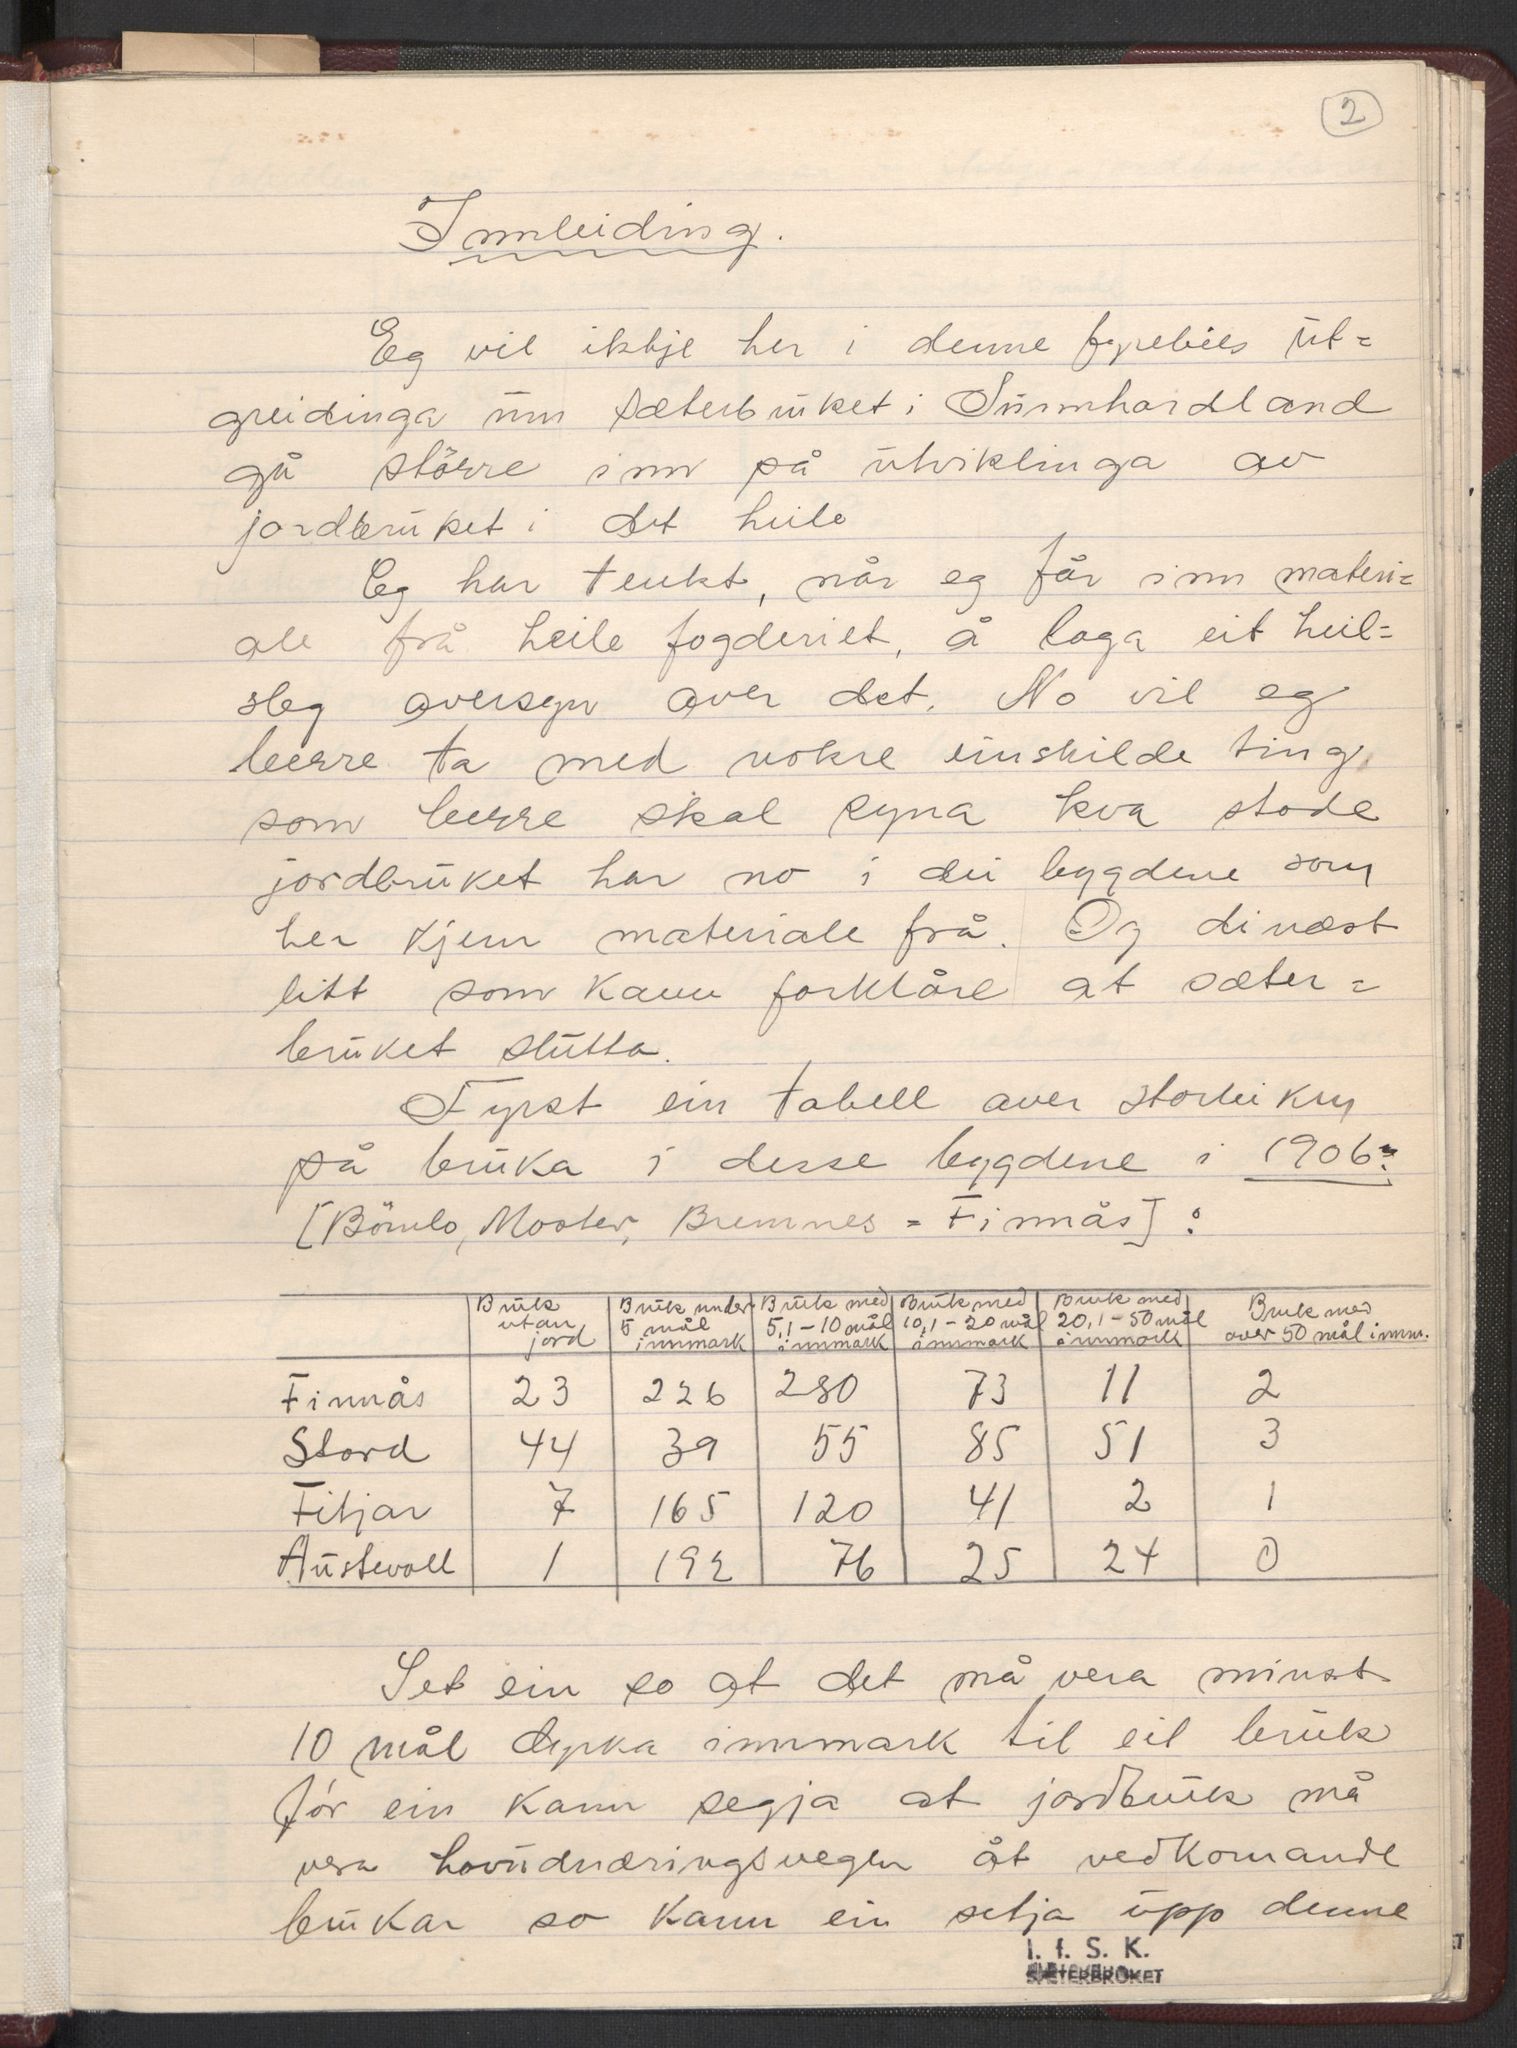 2
Innleiding.
Eg vil ikkje her i denne fyrebils ut=
greidinga um sæterbruket i Sunnhordland
gå större inn på utviklinga av
jordbruket i det heile
Eg har tenkt, når eg får inn materi=
ale frå heile fogderiet, å laga eit heil=
sleg oversyn over det. No vil eg
berre ta med nokre einskilde ting,
som berre skal syna kva stode
jordbruket har no i dei bygdene som
her kjem materiale frå. Og dinæst
litt som kann forklåre at sæter=
bruket slutta.
Fyrst ein tabell over storleiken
på bruka i desse bygdene i 1906:
[Bömlo, Moster, Bremnes = Finnås]:
Bruk utan jord | Bruk under 5 mål innmark | Bruk med 5,1-10 mål innmark | Bruk med 10,1-20 mål innmark | Bruk med 20,1-50 mål innmark | Bruk med over 50 mål innm.
Finnås 23 226 280 73 11 2
Stord 44 39 55 85 51 3
Fitjar 7 165 120 41 2 1
Austevoll 1 192 76 25 24 0
Set ein so at det må vera minst
10 mål dyrka innmark til eit bruk
för ein kann segja at jordbruk må
vera hovudnæringsvegen åt vedkomande
brukar so kann ein setja upp denne
I. f. S. K.
SÆTERBRUKET